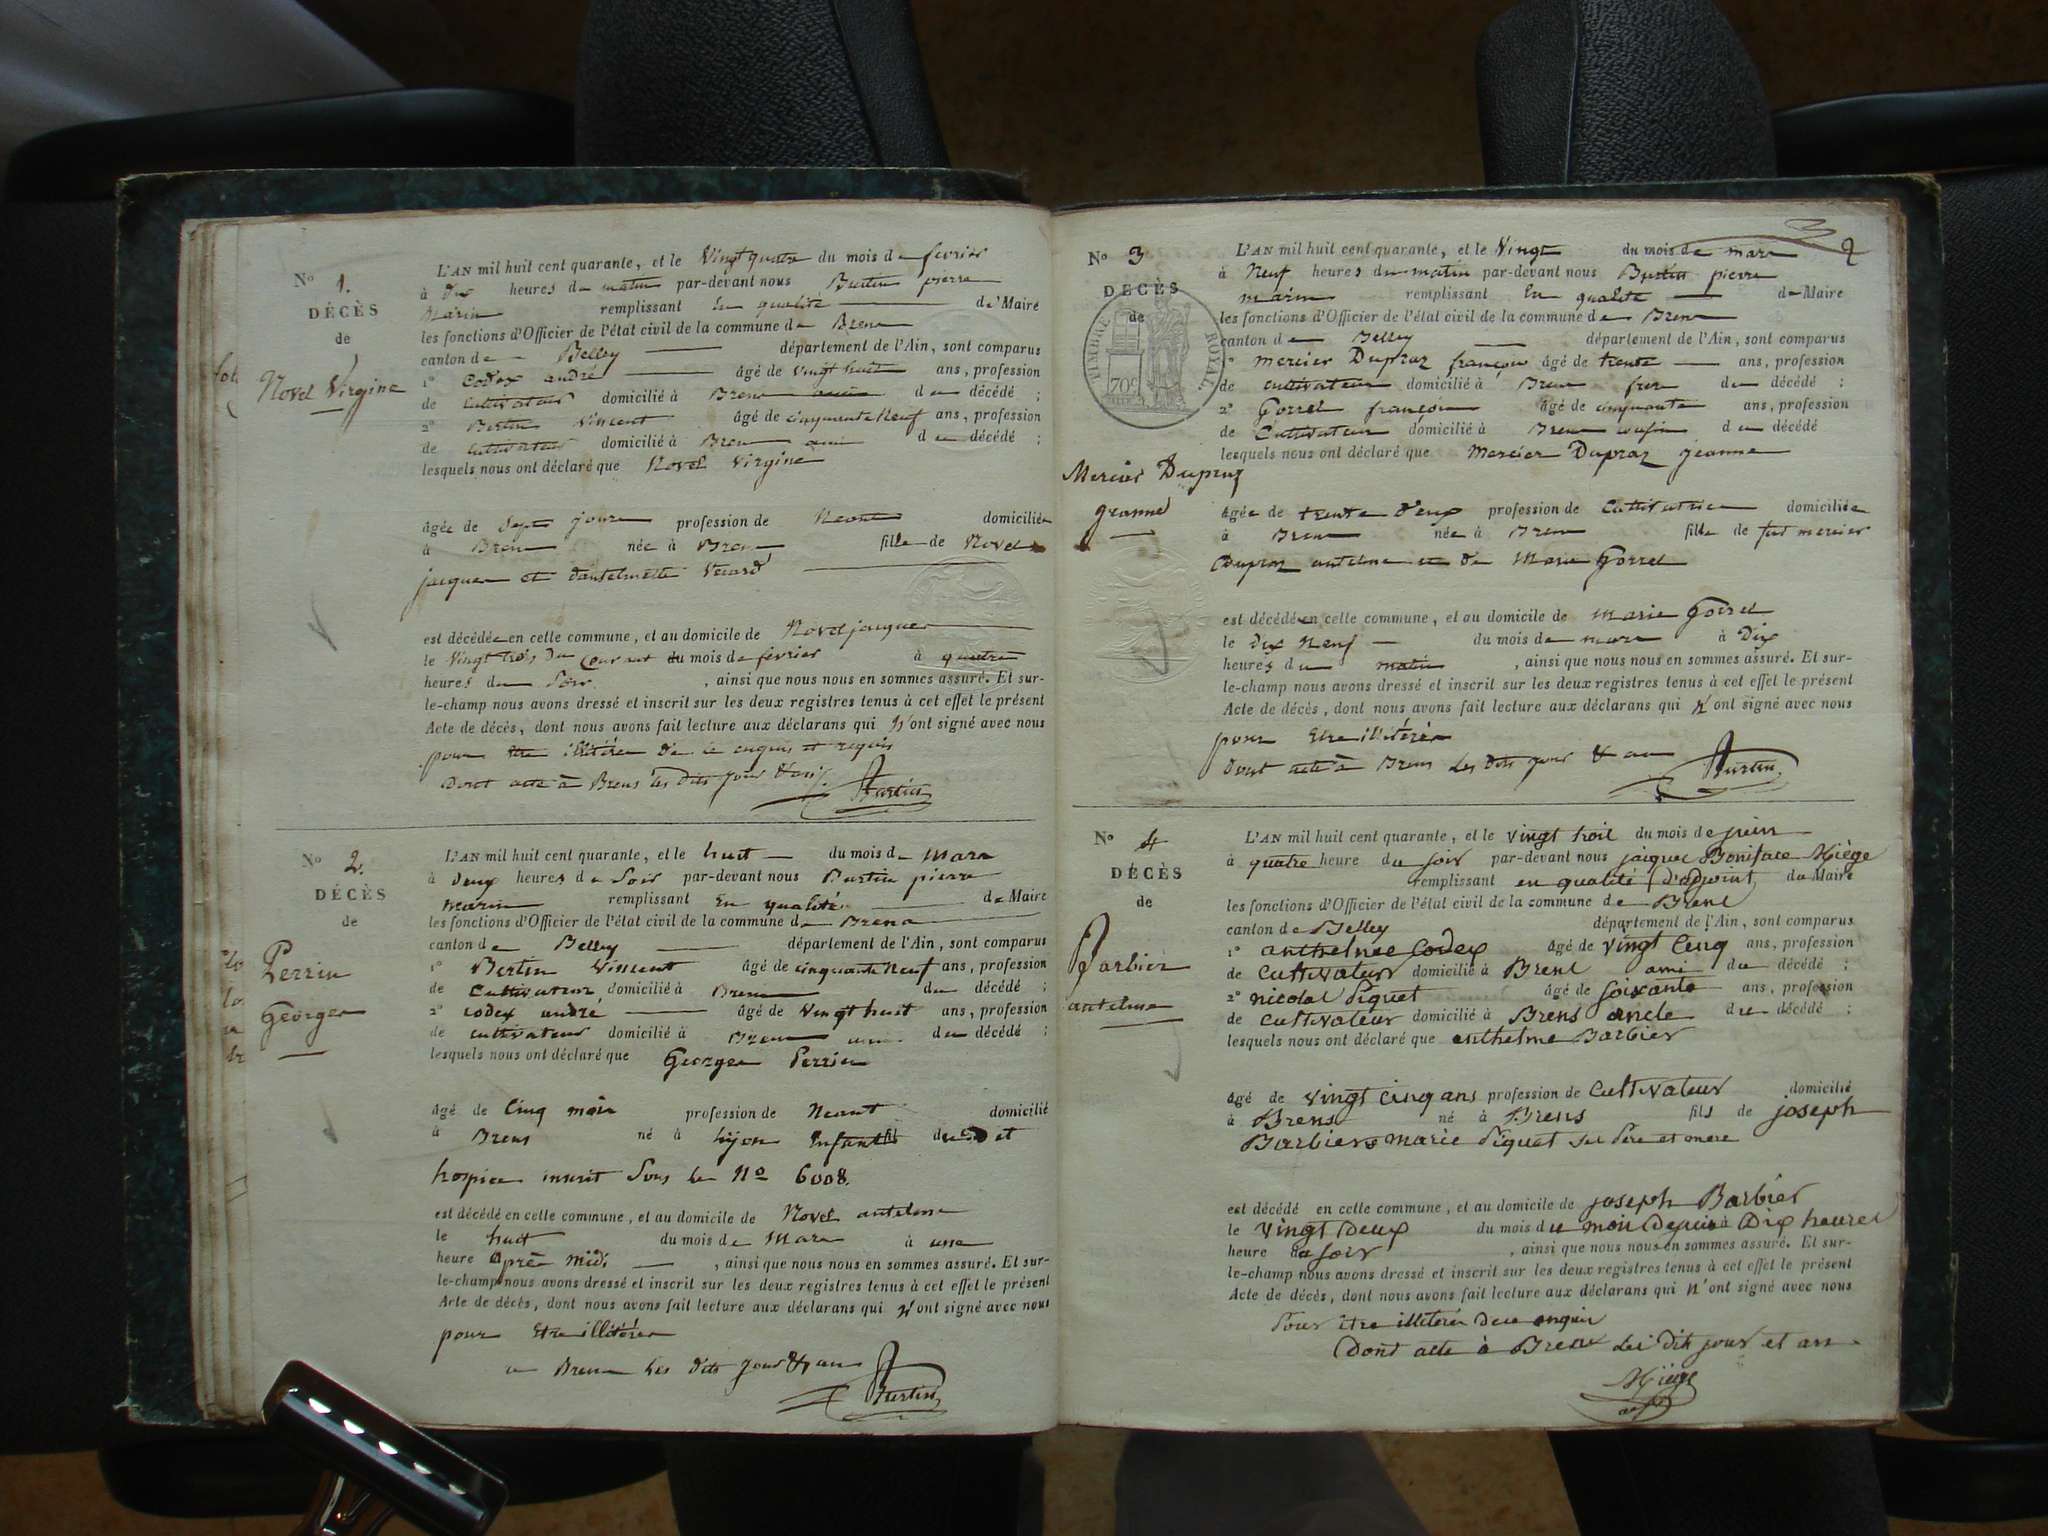 N° 1.
DÉCÈS
de
Novel Virginie
L'AN mil huit cent quarante, et le Vingt quatre du mois de fevrier
à dix heures du matin par-devant nous Burtin pierre
Marin remplissant En qualité de Maire
les fonctions d'Officier de l'état civil de la commune de Brens
canton de Belley département de l'Ain, sont comparus
1° Codex andré âgé de vingt huit ans, profession
de cultivateur domicilié à Brens ami du décédé ;
2° Bertin Vincent âgé de cinquante Neuf ans, profession
de cultivateur domicilié à Brens ami du décédé ;
lesquels nous ont déclaré que Novel Virginie
âgée de Sept jours profession de Neant domiciliée
à Brens née à Brens fille de Novel
jacques et d'antelmette
est décédée en cette commune, et au domicile de Novel jacques
le Vingt trois du courant du mois de fevrier à quatre
heures du Soir, ainsi que nous nous en sommes assuré. Et sur-
le-champ nous avons dressé et inscrit sur les deux registres tenus à cet effet le présent
Acte de décès, dont nous avons fait lecture aux déclarans qui N'ont signé avec nous
pour être illitérés de ce enquis et requis
Dont acte à Brens les dits jour & an
Burtin
N° 2.
DÉCÈS
de
Perrin
Georges
L'AN mil huit cent quarante, et le huit du mois de Mars
à Deux heures du Soir par-devant nous Burtin pierre
marin remplissant En qualité de Maire
les fonctions d'Officier de l'état civil de la commune de Brens
canton de Belley département de l'Ain, sont comparus
1° Bertin Vincent âgé de cinquante Neuf ans, profession
de Cultivateur domicilié à Brens du décédé ;
2° codex andré âgé de Vingt huit ans, profession
de cultivateur domicilié à Brens ami du décédé ;
lesquels nous ont déclaré que Georges Perrin
âgé de Cinq mois profession de Neant domicilié
à Brens né à
hospice inscrit Sous le N° 6008.
est décédé en cette commune, et au domicile de Novel antelme
le huit du mois de Mars à une
heure après midi, ainsi que nous nous en sommes assuré. Et sur-
le-champ nous avons dressé et inscrit sur les deux registres tenus à cet effet le présent
Acte de décès, dont nous avons fait lecture aux déclarans qui N'ont signé avec nous
pour Etre illitérés
a Brens les dits jour & an
Burtin
2
N° 3
DÉCÈS
de
TIMBRE ROYAL
70c
Mercier Dupraz
jeanne
L'AN mil huit cent quarante, et le Vingt du mois de mars
à Neuf heures du matin par-devant nous Burtin pierre
marin remplissant En qualité de Maire
les fonctions d'Officier de l'état civil de la commune de Brens
canton de Belley département de l'Ain, sont comparus
1° mercier Dupraz françois âgé de trente ans, profession
de cultivateur domicilié à Brens frere du décédé ;
2° Gorrel françois âgé de cinquante ans, profession
de Cultivateur domicilié à Brens cousin du décédé
lesquels nous ont déclaré que Mercier Dupraz jeanne
âgée de trente deux profession de Cultivatrice domiciliée
à Brens née à Brens fille de feu mercier
Dupraz antelme et de Marie Gorrel
est décédée en cette commune, et au domicile de Marie Gorrel
le dix neuf du mois de mars à Dix
heures du matin, ainsi que nous nous en sommes assuré. Et sur-
le-champ nous avons dressé et inscrit sur les deux registres tenus à cet effet le présent
Acte de décès, dont nous avons fait lecture aux déclarans qui N'ont signé avec nous
pour Etre illitérés
Dont acte à Brens les dits jour & an
Burtin
N° 4
DÉCÈS
de
Barbier
antelme
L'AN mil huit cent quarante, et le vingt trois du mois de juin
à quatre heure du soir par-devant nous jacques Boniface Miège
remplissant en qualité d'adjoint du Maire
les fonctions d'Officier de l'état civil de la commune de Brens
canton de Belley département de l'Ain, sont comparus
1° anthelmee Codex âgé de vingt cinq ans, profession
de cultivateur domicilié à Brens ami du décédé ;
2° nicolas Piquet âgé de soixante ans, profession
de cultivateur domicilié à Brens oncle du décédé ;
lesquels nous ont déclaré que anthelme Barbier
âgé de vingt cinq ans profession de cultivateur domicilié
à Brens né à Brens fils de joseph
Barbier & marie Piquet ses Père et mere
est décédé en cette commune, et au domicile de joseph Barbier
le vingt deux du mois du mois à Dix heures
heure du soir, ainsi que nous nous en sommes assuré. Et sur-
le-champ nous avons dressé et inscrit sur les deux registres tenus à cet effet le présent
Acte de décès, dont nous avons fait lecture aux déclarans qui n'ont signé avec nous
Pour être illitérés de ce enquis
Dont acte à Brens les dits jour et an
Miège